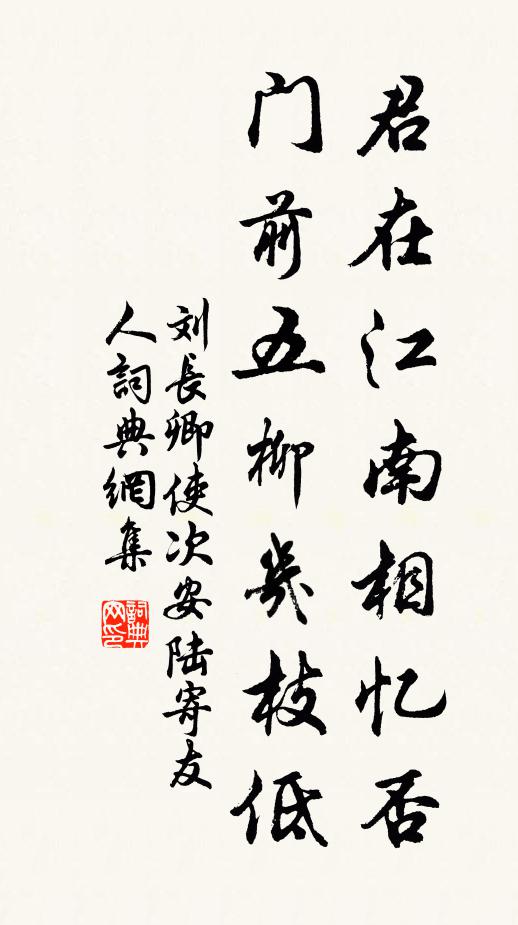 君在江南相忆否
门前五柳幾枝低
刘長卿使次安陆寄友
人詞典網集
詞典
网印